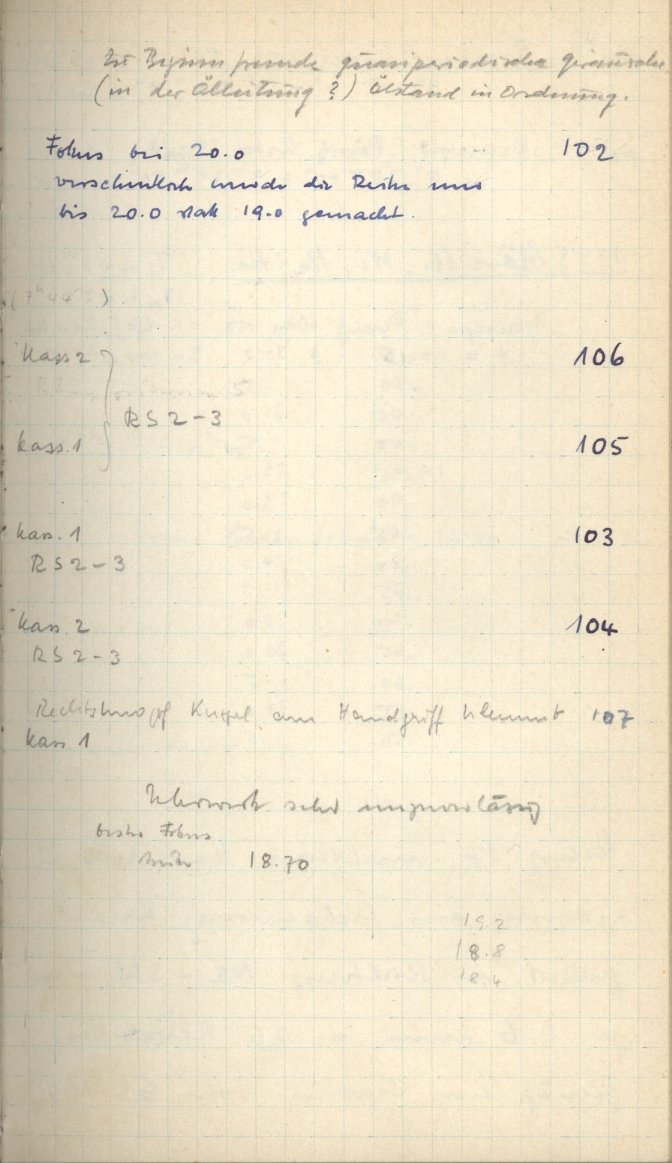 Zu Beginn fremde quasiperiodische Geräusche
(in der Ölleitung ?) Ölstand in Ordnung.
Fokus bei 20.0 102
versehentlich wurde die Reihe nur
bis 20.0 statt 19.0 gemacht.
Kass 2 106
RS 2-3
kass. 1 105
kass. 1 103
RS 2-3
kass. 2 104
RS 2-3
Rechtsknopf Kuppel am Handgriff klemmt 107
kass 1
Uhrwerk sehr unzuverlässig
bester Fokus
heute 18.70
19.2
18.8
18.4